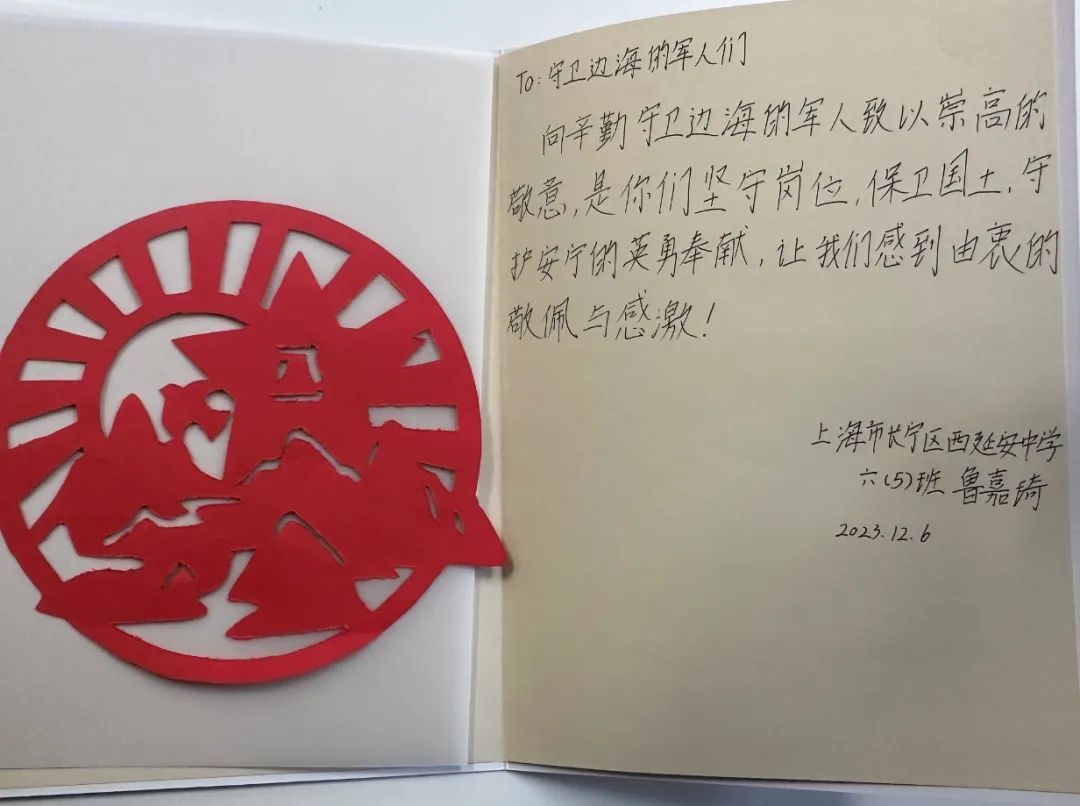 To：守卫边海的军人们
向辛勤守卫边海的军人致以崇高的
敬意，是你们坚守岗位，保卫国土，守
护安宁的英勇奉献，让我们感到由衷的
敬佩与感激！
上海市长宁区西延安中学
六（5）班 鲁嘉琦
2023.12.6
八一